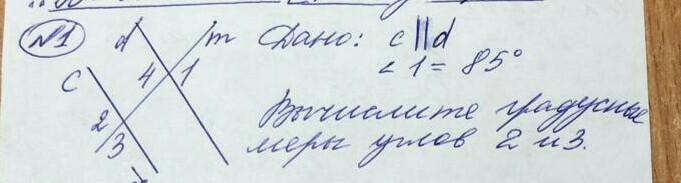 №1
d
m
Дано: c || d
c
4
1
∠1 = 85°
2
3
Вычислите градусные
меры углов 2 и 3.